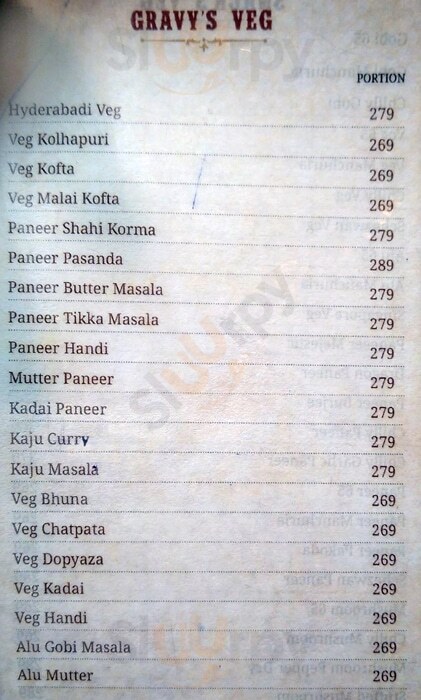 GRAVY'S VEG
PORTION
Hyderabadi Veg 279
Veg Kolhapuri 269
Veg Kofta 269
Veg Malai Kofta 269
Paneer Shahi Korma 279
Paneer Pasanda 289
Paneer Butter Masala 279
Paneer Tikka Masala 279
Paneer Handi 279
Mutter Paneer 279
Kadai Paneer 279
Kaju Curry 279
Kaju Masala 279
Veg Bhuna 269
Veg Chatpata 269
Veg Dopyaza 269
Veg Kadai 269
Veg Handi 269
Alu Gobi Masala 269
Alu Mutter 269
sluurpy
sluurpy